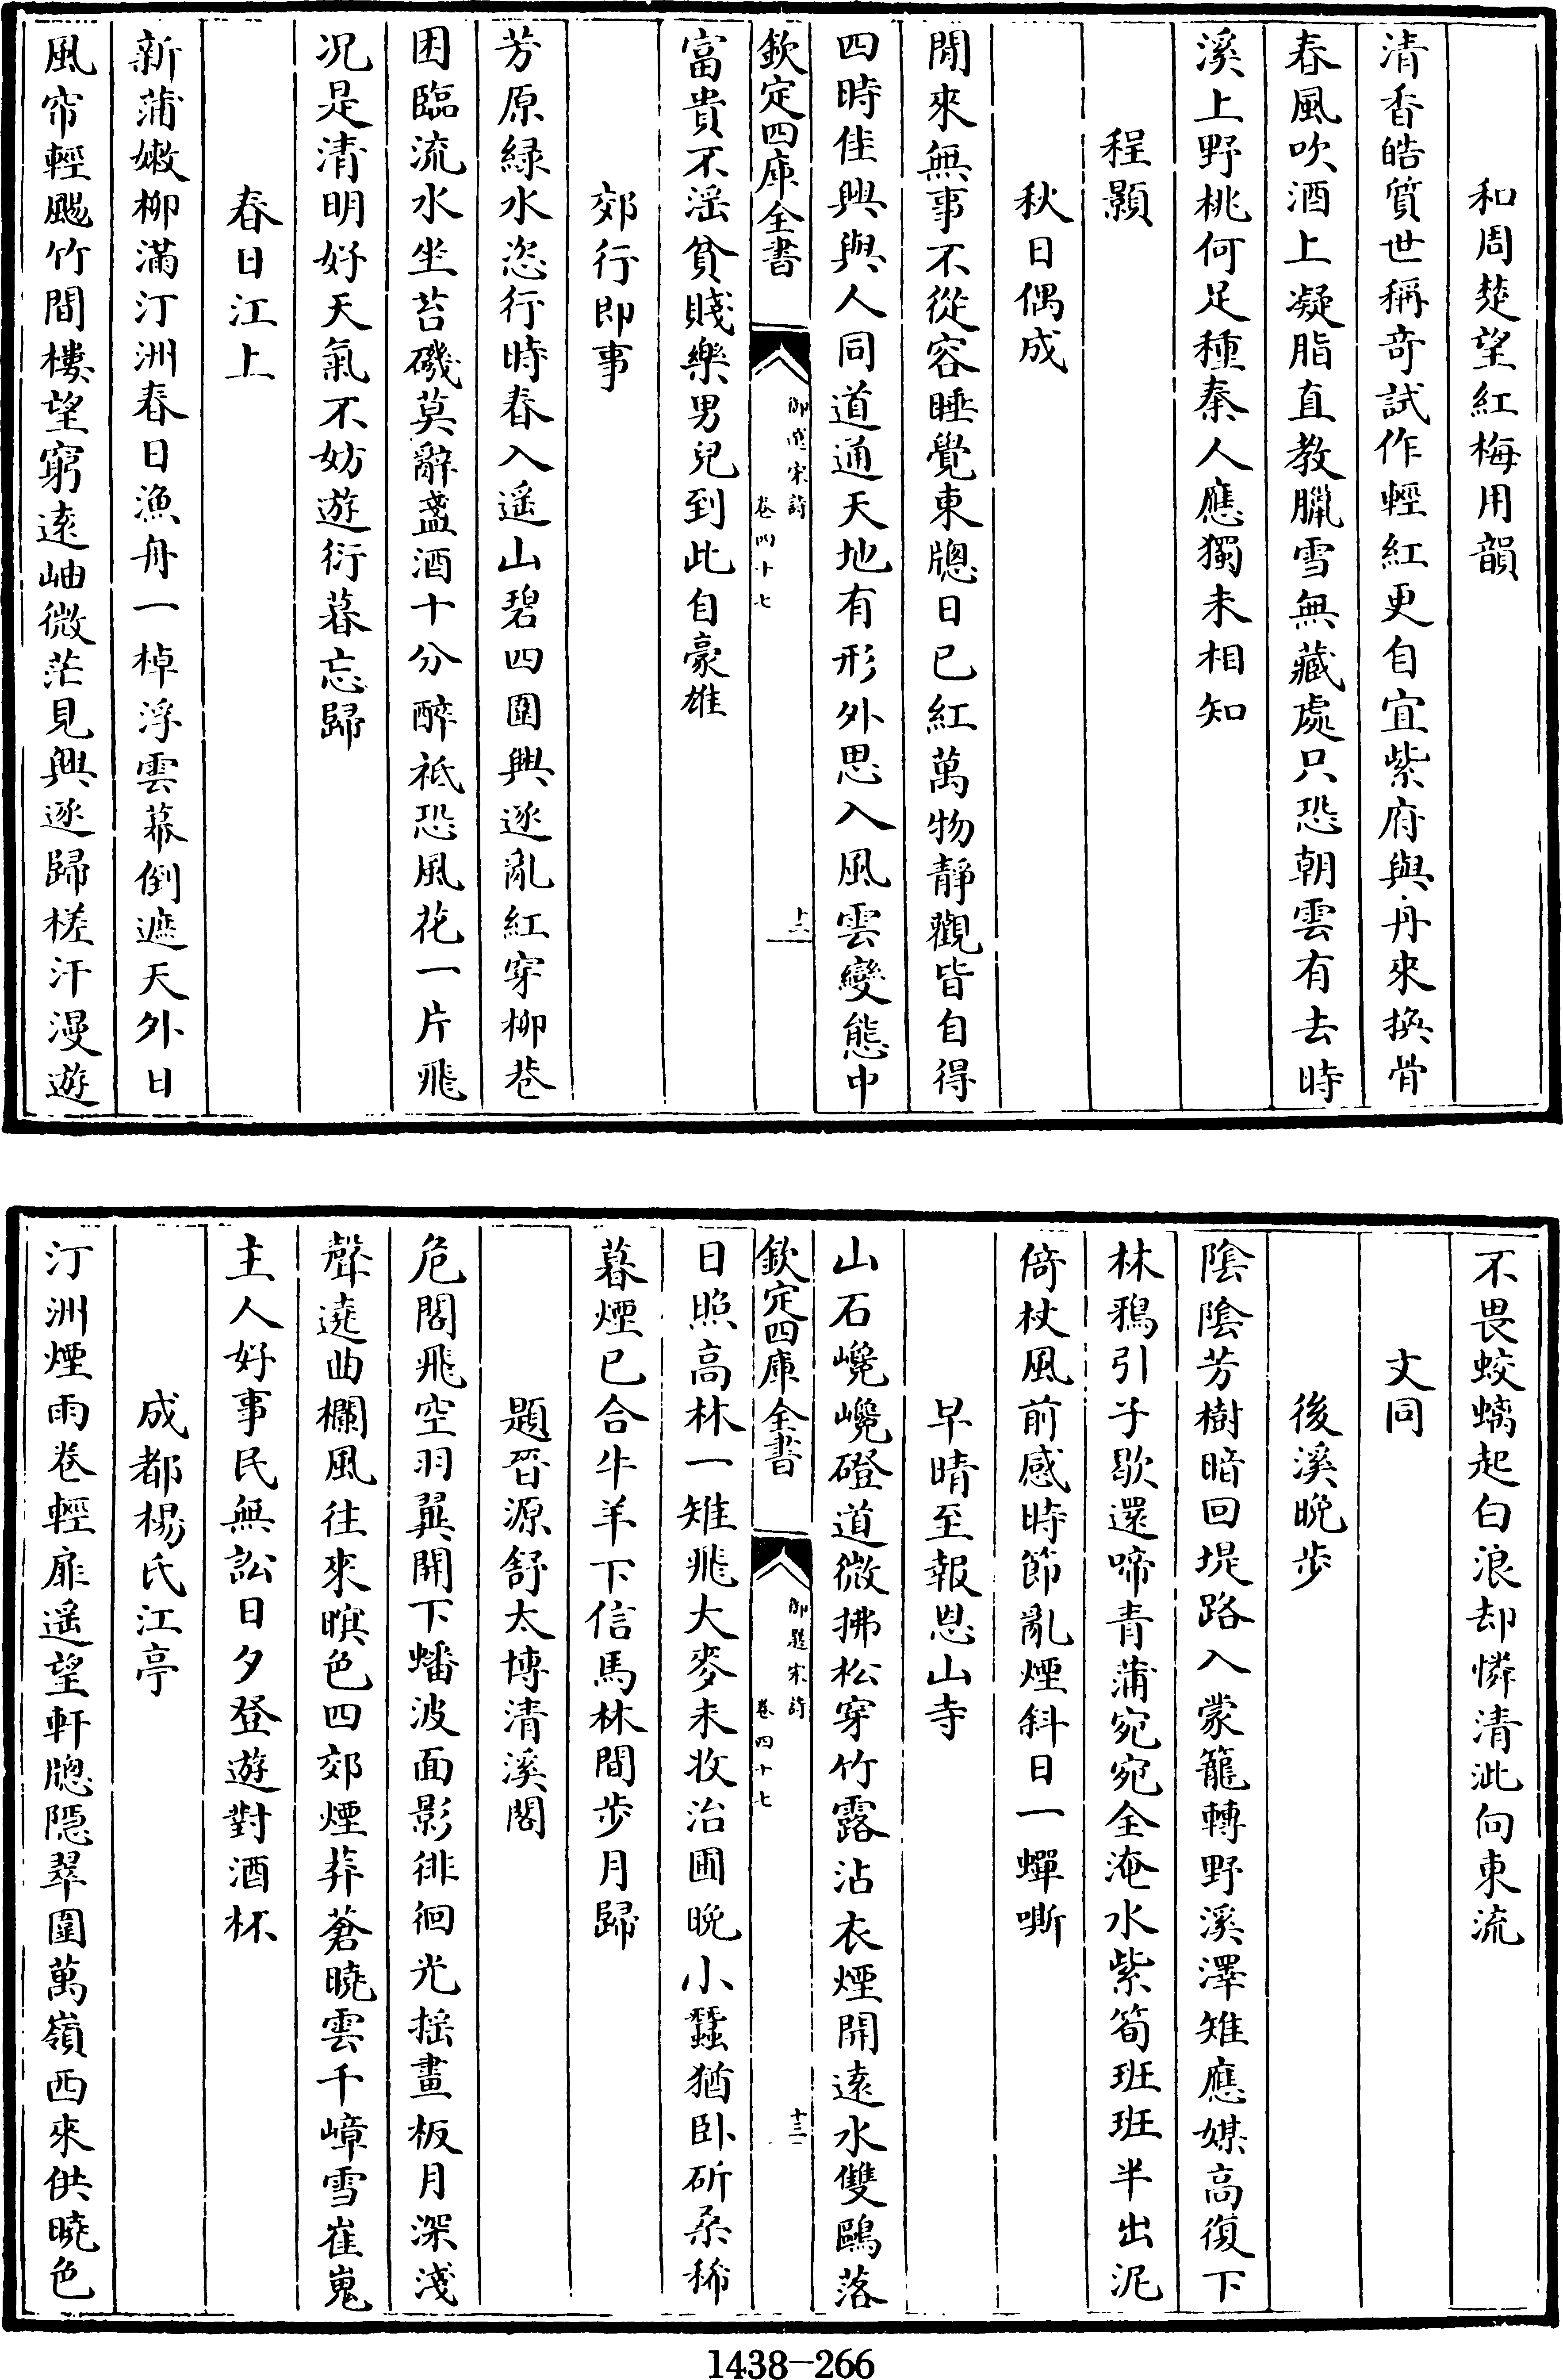 和周楚望紅梅用韻
清香皓質世稱奇試作輕紅更自宜紫府與丹來換骨
春風吹酒上凝脂直教臘雪無藏處只恐朝雲有去時
溪上野桃何足種秦人應獨未相知
程顥
秋日偶成
閒來無事不從容睡覺東牕日已紅萬物靜觀皆自得
四時佳興與人同道通天地有形外思入風雲變態中
欽定四庫全書
御選宋詩
卷四十七
十二
富貴不滛貧賤樂男兒到此自豪雄
郊行即事
芳原緑水恣行時春入遥山碧四圍興逐亂紅穿柳巷
困臨流水坐苔磯莫辭盞酒十分醉祗恐風花一片飛
况是清明好天氣不妨遊衍暮忘歸
春日江上
新蒲嫩柳滿汀洲春日漁舟一棹浮雲幕倒遮天外日
風帘輕颺竹間樓望窮遠岫微茫見興逐歸槎汗漫遊
不畏蛟螭起白浪却憐清泚向東流
文同
後溪晚步
陰陰芳樹暗回堤路入蒙籠轉野溪澤雉應媒高復下
林鴉引子歇還啼青蒲宛宛全淹水紫筍班班半出泥
倚杖風前感時節亂煙斜日一蟬嘶
早晴至報恩山寺
山石巉巉磴道微拂松穿竹露沾衣煙開遠水雙鷗落
欽定四庫全書
御選宋詩
卷四十七
十三
日照高林一雉飛大麥未收治圃晚小蠶猶卧斫桑稀
暮煙已合牛羊下信馬林間步月歸
題晉源舒太博清溪閣
危閣飛空羽翼開下蟠波面影徘徊光揺畫板月深淺
聲遶曲欄風往來暝色四郊煙莽蒼曉雲千嶂雪崔嵬
主人好事民無訟日夕登遊對酒杯
成都楊氏江亭
汀洲煙雨卷輕扉遥望軒牕隠翠圍萬嶺西來供曉色
1438-266